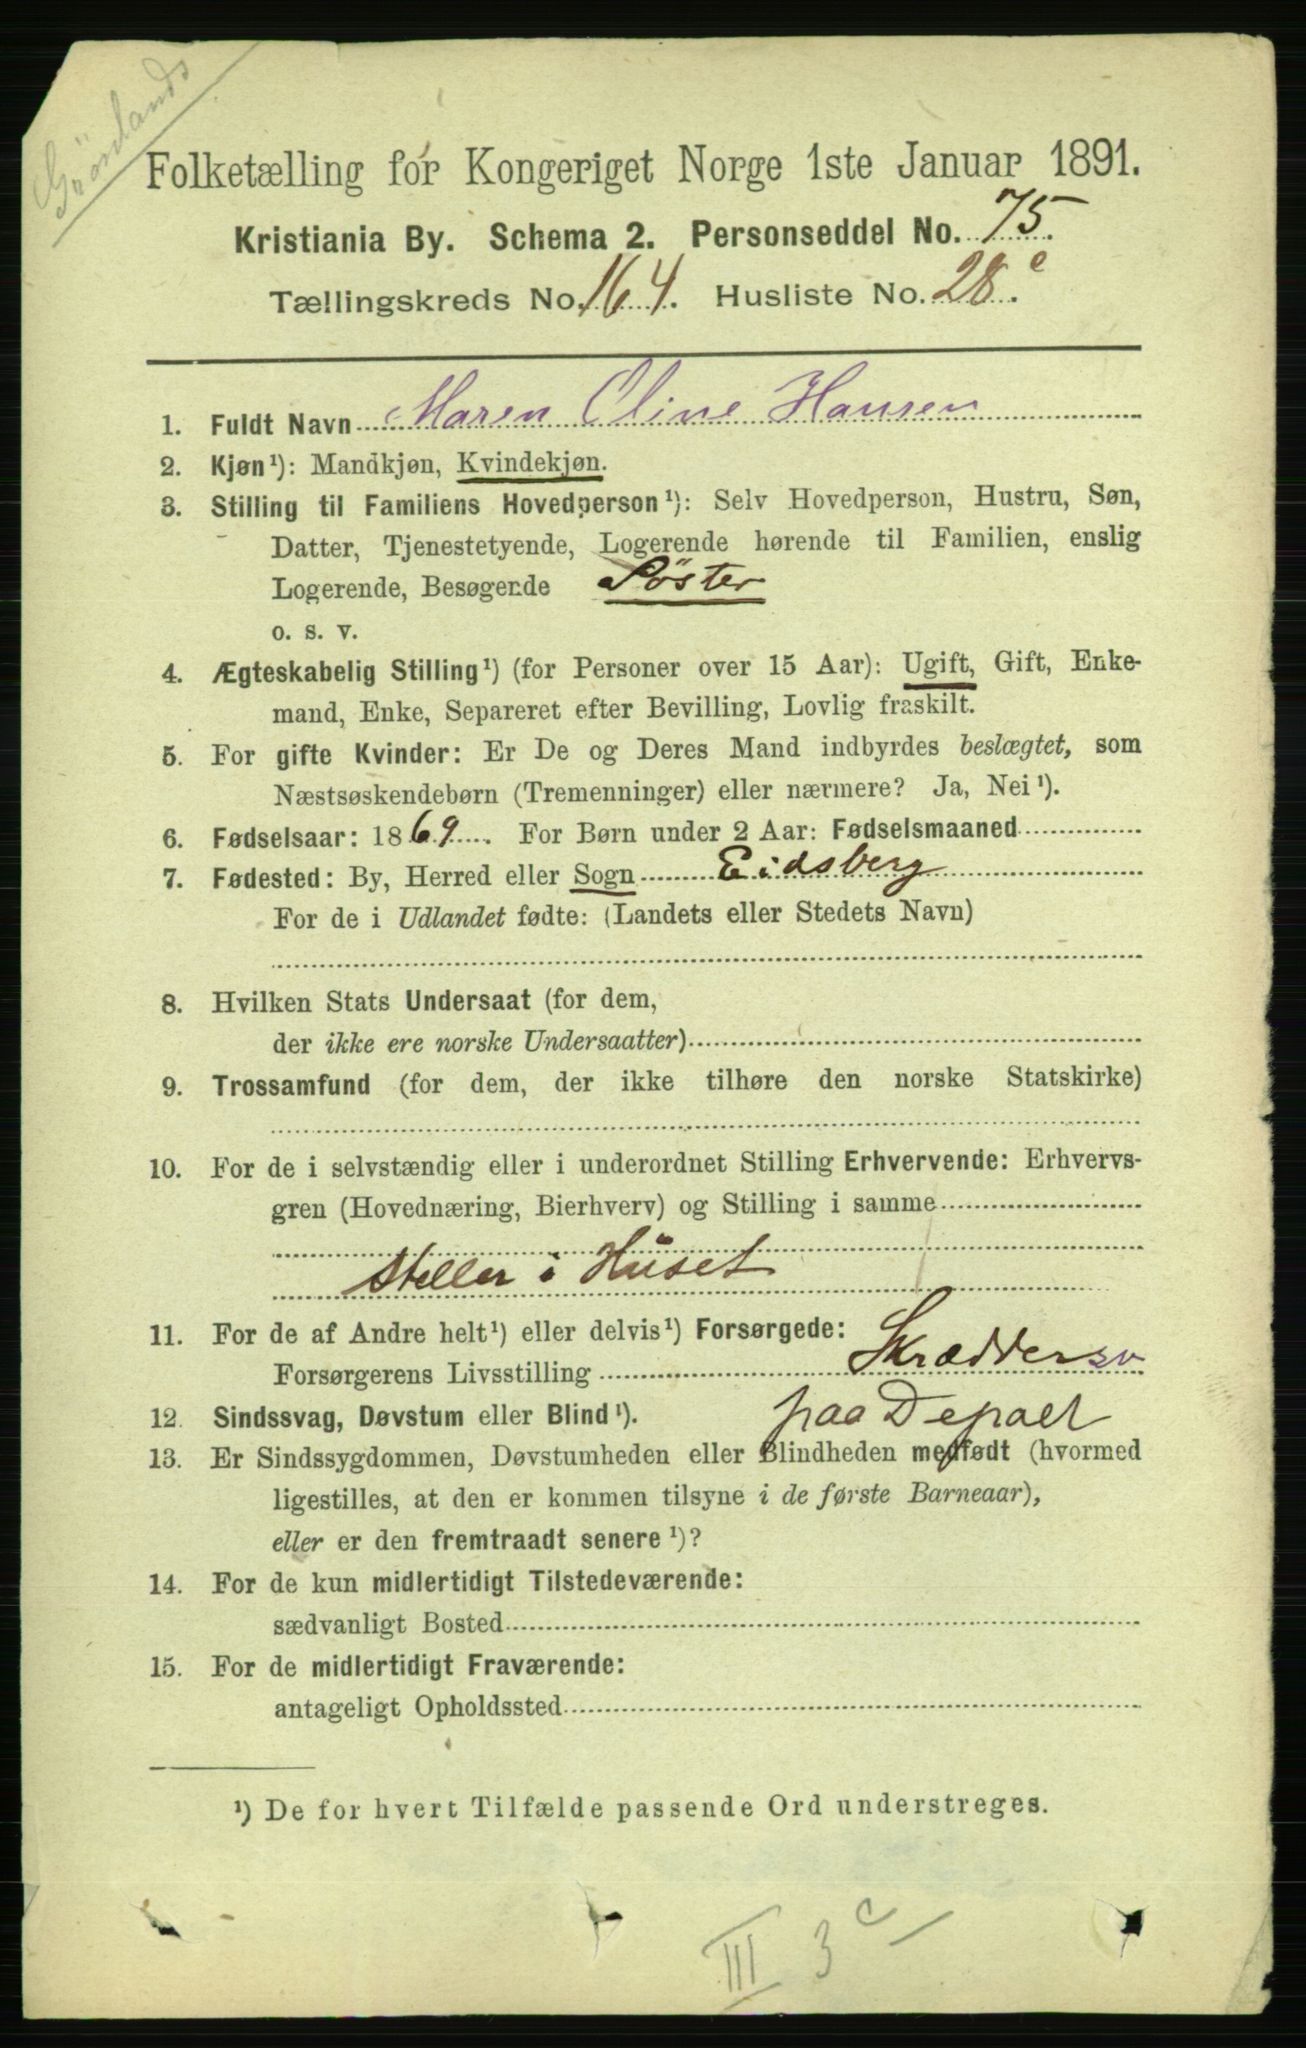 Grönlands
Folketælling for Kongeriget Norge 1ste Januar 1891.
Kristiania By. Schema 2. Personseddel No. 75.
Tællingskreds No. 164. Husliste No. 28 e.
1. Fuldt Navn Maren Oline Hansen
2. Kjøn¹): Mandkjøn, Kvindekjøn.
3. Stilling til Familiens Hovedperson¹): Selv Hovedperson, Hustru, Søn,
Datter, Tjenestetyende, Logerende hørende til Familien, enslig
Logerende, Besøgende Söster
o. s. v.
4. Ægteskabelig Stilling¹) (for Personer over 15 Aar): Ugift, Gift, Enke-
mand, Enke, Separeret efter Bevilling, Lovlig fraskilt.
5. For gifte Kvinder: Er De og Deres Mand indbyrdes beslægtet, som
Næstsøskendebørn (Tremenninger) eller nærmere? Ja, Nei¹).
6. Fødselsaar: 1869. For Børn under 2 Aar: Fødselsmaaned
7. Fødested: By, Herred eller Sogn Eidsberg
For de i Udlandet fødte: (Landets eller Stedets Navn)
8. Hvilken Stats Undersaat (for dem,
der ikke ere norske Undersaatter)
9. Trossamfund (for dem, der ikke tilhøre den norske Statskirke)
10. For de i selvstændig eller i underordnet Stilling Erhvervende: Erhvervs-
gren (Hovednæring, Bierhverv) og Stilling i samme
Steller i Huset
11. For de af Andre helt¹) eller delvis¹) Forsørgede:
Forsørgerens Livsstilling Skræddersv
12. Sindssvag, Døvstum eller Blind¹). paa Depaet
13. Er Sindssygdommen, Døvstumheden eller Blindheden medfødt (hvormed
ligestilles, at den er kommen tilsyne i de første Barneaar),
eller er den fremtraadt senere¹)?
14. For de kun midlertidigt Tilstedeværende:
sædvanligt Bosted
15. For de midlertidigt Fraværende:
antageligt Opholdssted
¹) De for hvert Tilfælde passende Ord understreges.
III 3 c